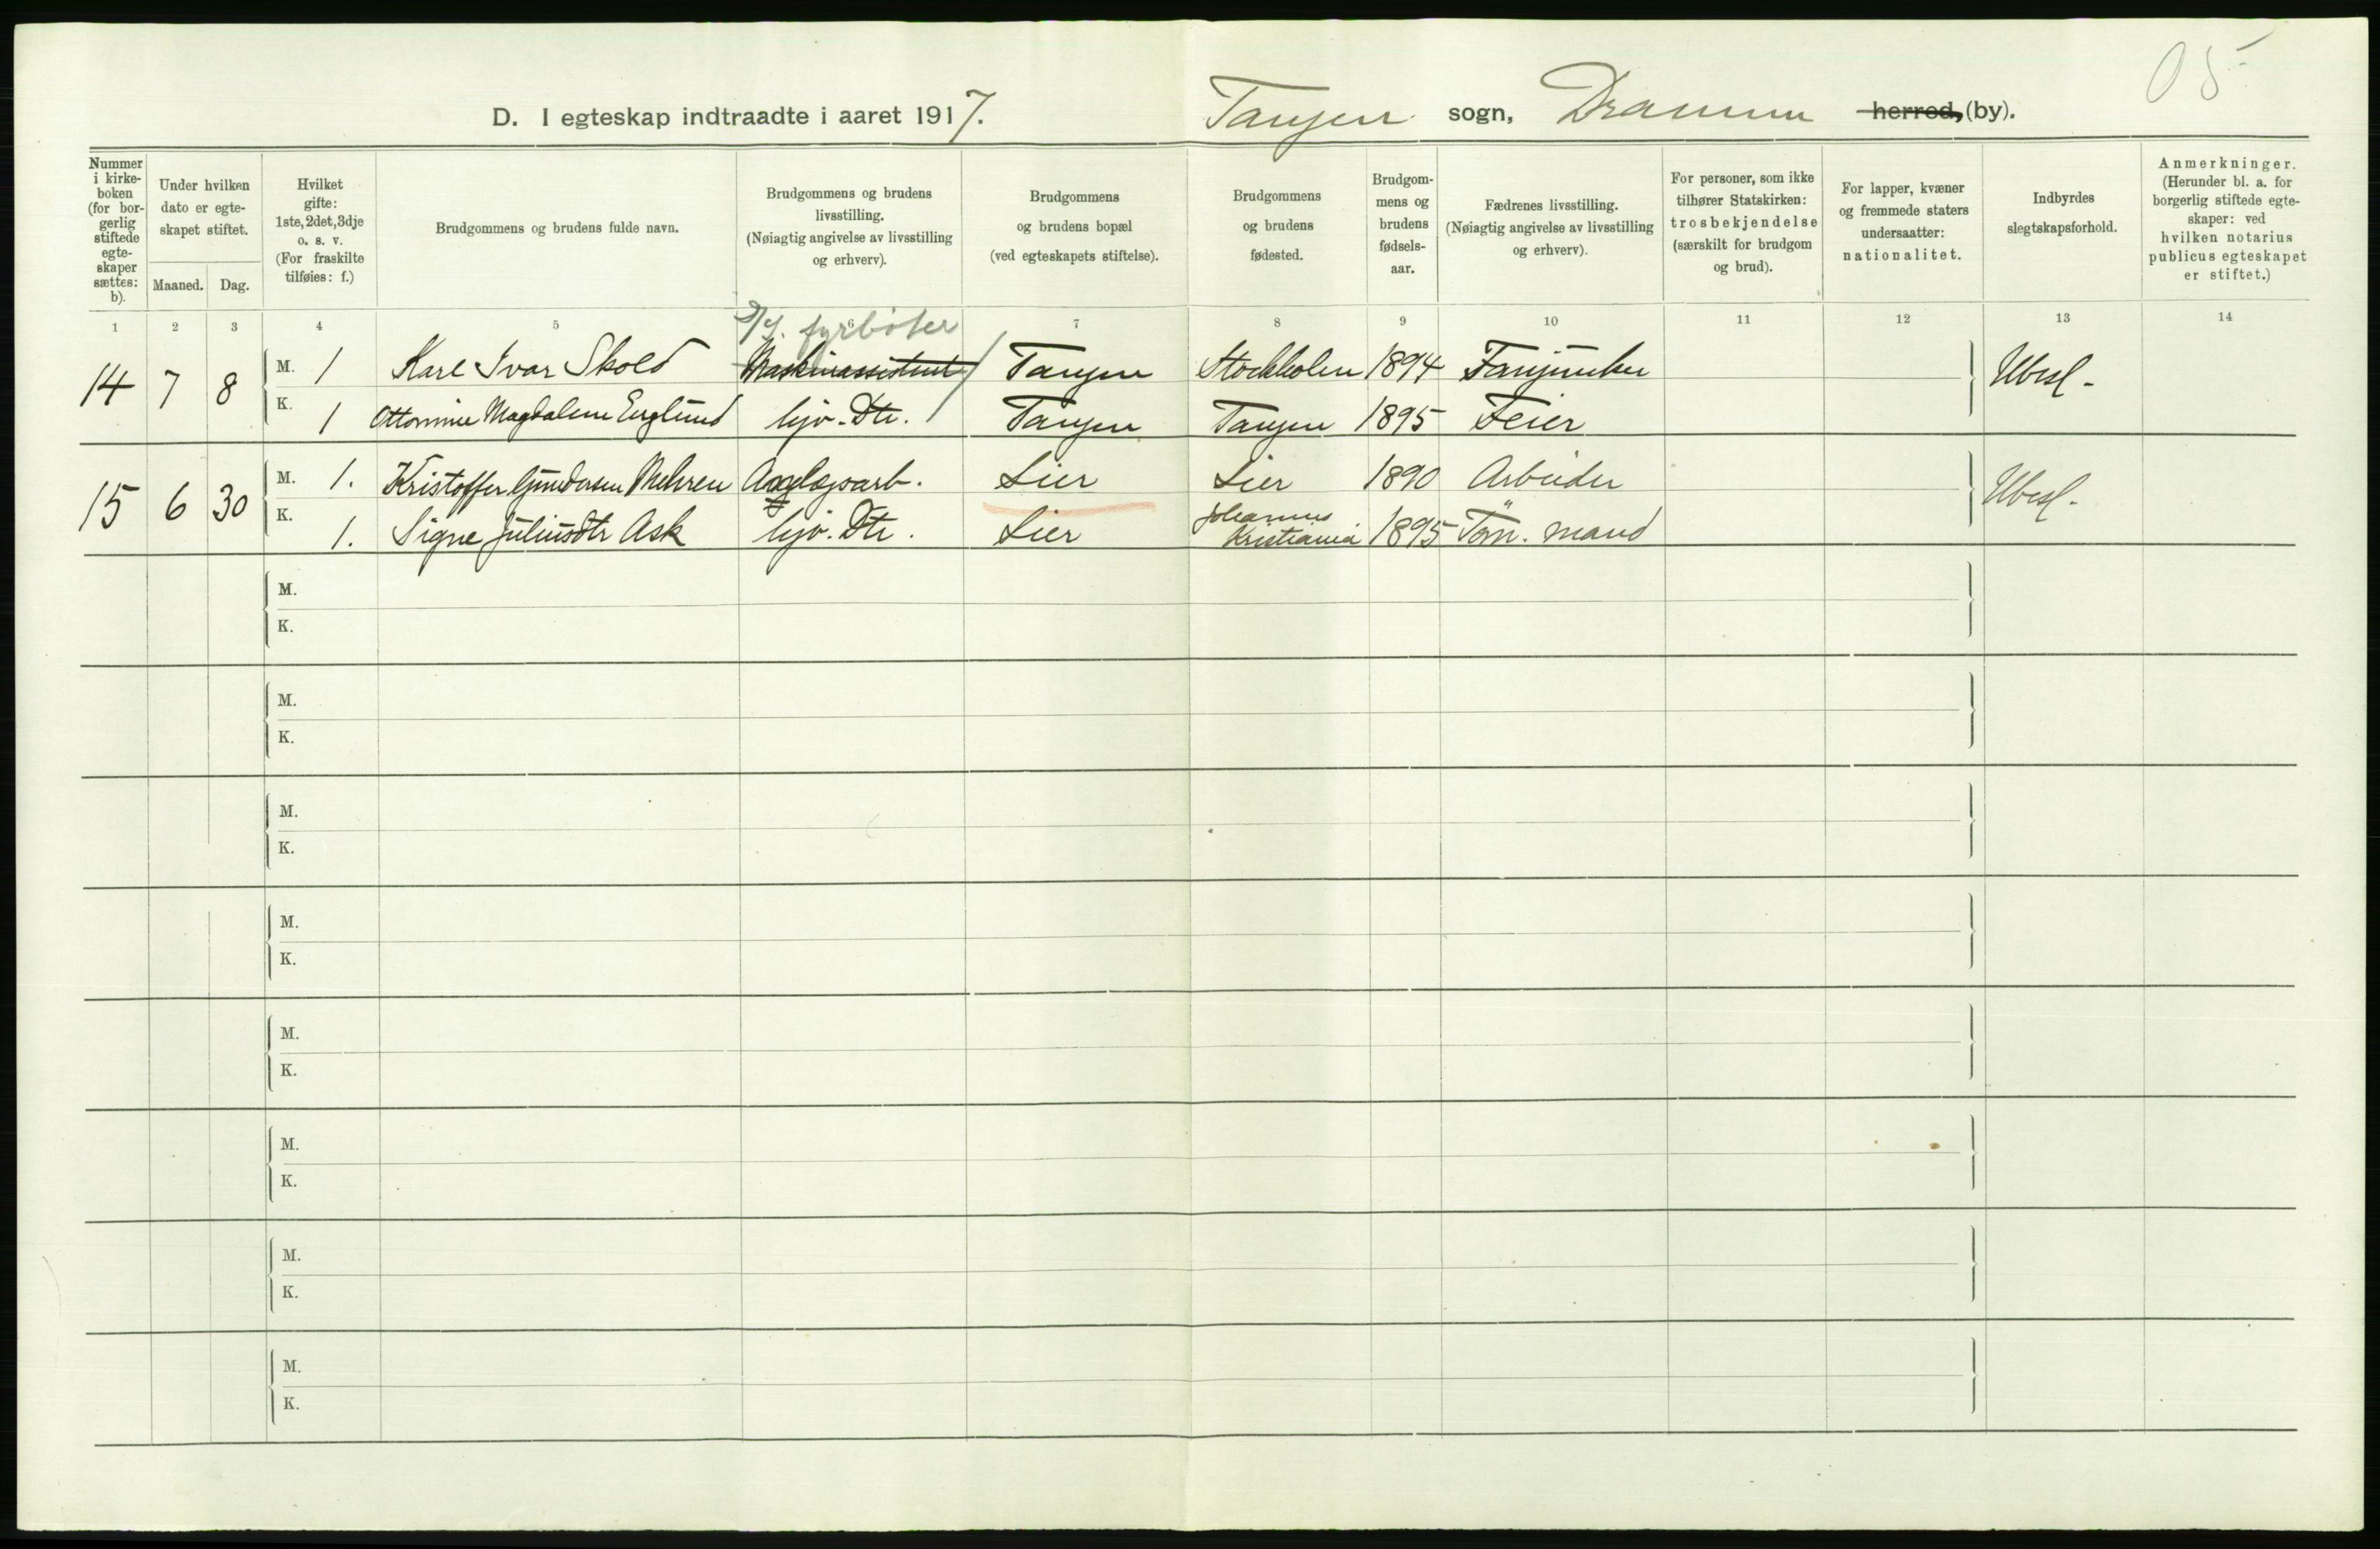 05
D. I egteskap indtraadte i aaret 1917. Tangen sogn, Drammen herred, (by).
Nummer i kirkeboken (for borgerlig stiftede egteskaper sættes: b).
Under hvilken dato er egteskapet stiftet.
Maaned. Dag.
Hvilket gifte: 1ste, 2det, 3dje o. s. v. (For fraskilte tilføies: f.)
Brudgommens og brudens fulde navn.
Brudgommens og brudens livsstilling. (Nøiagtig angivelse av livsstilling og erhverv).
Brudgommens og brudens bopæl (ved egteskapets stiftelse).
Brudgommens og brudens fødested.
Brudgommens og brudens fødselsaar.
Fædrenes livsstilling. (Nøiagtig angivelse av livsstilling og erhverv).
For personer, som ikke tilhører Statskirken: trosbekjendelse (særskilt for brudgom og brud).
For lapper, kvæner og fremmede staters undersaatter: nationalitet.
Indbyrdes slegtskapsforhold.
Anmerkninger. (Herunder bl. a. for borgerlig stiftede egteskaper: ved hvilken notarius publicus egteskapet er stiftet.)
1 2 3 4 5 6 7 8 9 10 11 12 13 14
fyrbøter
14 7 8 M. 1 Karl Ivar Skold Maskinassistent Tangen Stockholm 1894 Ubesl.
K. 1 Ottomine Magdalene Englund hjv. Dtr. Tangen Tangen 1895 Feier
15 6 30 M. 1. Kristoffer Gundersen Mehren Anglegsarb. Lier Lier 1890 Arbeider Ubesl.
K. 1. Signe Juliusdtr Ask hjv. Dtr. Lier Johannes Kristiania 1895 Töm. mand
M.
K.
M.
K.
M.
K.
M.
K.
M.
K.
M.
K.
M.
K.
M.
K.